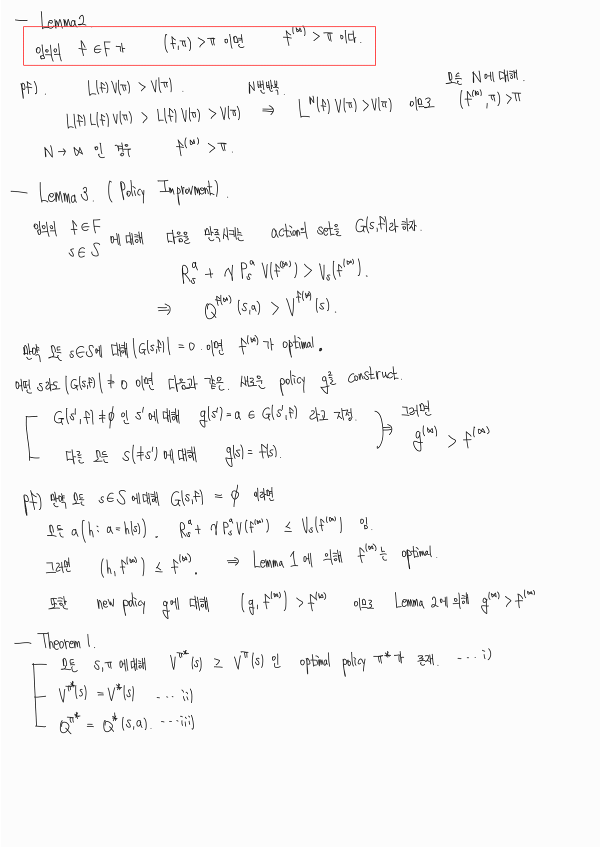 — Lemma2
임의의 f ∈ F 가 (f,π) > π 이면 f^(∞) > π 이다.
pf). L(f) V(π) > V(π). N번반복. 모든 N에 대해.
L(f) L(f) V(π) > L(f) V(π) > V(π) ⇒ L^N(f) V(π) > V(π) 이므로 (f^(N), π) > π
N → ∞ 인 경우 f^(∞) > π.
— Lemma 3. (Policy Improvment).
임의의 f ∈ F
s ∈ S 에 대해 다음을 만족시키는 action의 set을 G(s,f)라 하자.
R_s^a + γ P_s^a V(f^(∞)) > V_s(f^(∞)).
⇒ Q^f(∞) (s,a) > V^f(∞) (s).
만약 모든 s∈S에 대해 |G(s,f)| = 0 이면 f^(∞)가 optimal.
어떤 s라도 |G(s,f)| ≠ 0 이면 다음과 같은 새로운 policy g를 construct.
G(s',f) ≠ ∅ 인 s'에 대해 g(s') = a ∈ G(s',f) 라고 지정. ⇒ 그러면
다른 모든 s(≠s')에 대해 g(s) = f(s). g^(∞) > f^(∞)
pf) 만약 모든 s∈S에 대해 G(s,f) = ∅ 이라면
모든 a (h: a = h(s)). R_s^a + γ P_s^a V(f^(∞)) ≤ V_s(f^(∞)) 임.
그러면 (h, f^(∞)) ≤ f^(∞). ⇒ Lemma 1에 의해 f^(∞)는 optimal.
또한 new policy g에 대해 (g, f^(∞)) > f^(∞) 이므로 Lemma 2에 의해 g^(∞) > f^(∞)
— Theorem 1.
모든 s,π에 대해 V^π*(s) ≥ V^π(s) 인 optimal policy π*가 존재. ---i)
V^π*(s) = V*(s) ---ii)
Q^π* = Q*(s,a). ---iii)